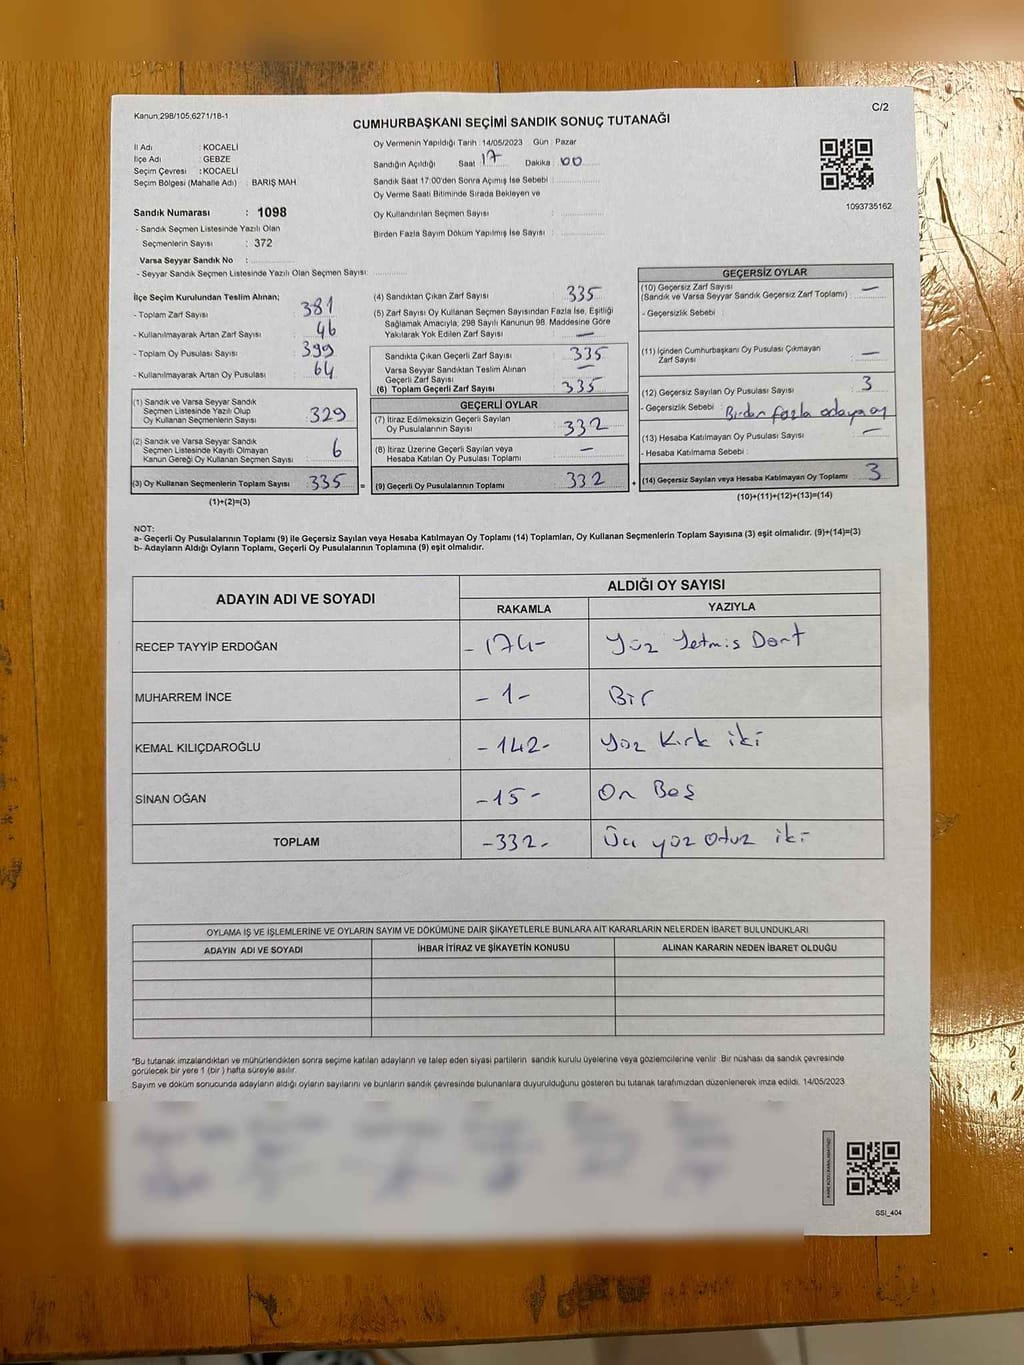 Kanun,298/105,6271/18-1
C/2
CUMHURBAŞKANI SEÇİMİ SANDIK SONUÇ TUTANAĞI
İl Adı : KOCAELİ
İlçe Adı : GEBZE
Seçim Çevresi : KOCAELİ
Seçim Bölgesi (Mahalle Adı) : BARIŞ MAH
Oy Vermenin Yapıldığı Tarih : 14/05/2023 Gün : Pazar
Sandığın Açıldığı Saat 17 Dakika : 00
Sandık Saat 17:00'den Sonra Açımış İse Sebebi :
Oy Verme Saati Bitiminde Sırada Bekleyen ve
Oy Kullandırılan Seçmen Sayısı :
Birden Fazla Sayım Döküm Yapılmış İse Sayısı :
1093735162
Sandık Numarası : 1098
- Sandık Seçmen Listesinde Yazılı Olan
Seçmenlerin Sayısı : 372
Varsa Seyyar Sandık No :
- Seyyar Sandık Seçmen Listesinde Yazılı Olan Seçmen Sayısı:
İlçe Seçim Kurulundan Teslim Alınan;
- Toplam Zarf Sayısı : 381
- Kullanılmayarak Artan Zarf Sayısı : 46
- Toplam Oy Pusulası Sayısı : 399
- Kullanılmayarak Artan Oy Pusulası : 64
(1) Sandık ve Varsa Seyyar Sandık
Seçmen Listesinde Yazılı Olup
Oy Kullanan Seçmenlerin Sayısı 329
(2) Sandık ve Varsa Seyyar Sandık
Seçmen Listesinde Kayıtlı Olmayan
Kanun Gereği Oy Kullanan Seçmen Sayısı 6
(3) Oy Kullanan Seçmenlerin Toplam Sayısı 335 =
(1)+(2)=(3)
(4) Sandıktan Çıkan Zarf Sayısı 335
(5) Zarf Sayısı Oy Kullanan Seçmen Sayısından Fazla İse, Eşitliği
Sağlamak Amacıyla, 298 Sayılı Kanunun 98. Maddesine Göre
Yakılarak Yok Edilen Zarf Sayısı —
Sandıkta Çıkan Geçerli Zarf Sayısı 335
Varsa Seyyar Sandıktan Teslim Alınan
Geçerli Zarf Sayısı —
(6) Toplam Geçerli Zarf Sayısı 335
GEÇERLİ OYLAR
(7) İtiraz Edilmeksizin Geçerli Sayılan
Oy Pusulalarının Sayısı 332
(8) İtiraz Üzerine Geçerli Sayılan veya
Hesaba Katılan Oy Pusulası Toplamı —
(9) Geçerli Oy Pusulalarının Toplamı 332 +
GEÇERSİZ OYLAR
(10) Geçersiz Zarf Sayısı
(Sandık ve Varsa Seyyar Sandık Geçersiz Zarf Toplamı) —
- Geçersizlik Sebebi :
(11) İçinden Cumhurbaşkanı Oy Pusulası Çıkmayan
Zarf Sayısı —
(12) Geçersiz Sayılan Oy Pusulası Sayısı 3
- Geçersizlik Sebebi : Birden fazla adaya oy
(13) Hesaba Katılmayan Oy Pusulası Sayısı —
- Hesaba Katılmama Sebebi :
(14) Geçersiz Sayılan veya Hesaba Katılmayan Oy Toplamı 3
(10)+(11)+(12)+(13)=(14)
NOT:
a- Geçerli Oy Pusulalarının Toplamı (9) ile Geçersiz Sayılan veya Hesaba Katılmayan Oy Toplamı (14) Toplamları, Oy Kullanan Seçmenlerin Toplam Sayısına (3) eşit olmalıdır. (9)+(14)=(3)
b- Adayların Aldığı Oyların Toplamı, Geçerli Oy Pusulalarının Toplamına (9) eşit olmalıdır.
ADAYIN ADI VE SOYADI
ALDIĞI OY SAYISI
RAKAMLA YAZIYLA
RECEP TAYYİP ERDOĞAN - 174- Yüz Yetmis Dört
MUHARREM İNCE - 1- Bir
KEMAL KILIÇDAROĞLU - 142- Yüz Kırk iki
SİNAN OĞAN -15- On Beş
TOPLAM -332- Üç yüz otuz iki
OYLAMA İŞ VE İŞLEMLERİNE VE OYLARIN SAYIM VE DÖKÜMÜNE DAİR ŞİKAYETLERLE BUNLARA AİT KARARLARIN NELERDEN İBARET BULUNDUKLARI
ADAYIN ADI VE SOYADI İHBAR İTİRAZ VE ŞİKAYETİN KONUSU ALINAN KARARIN NEDEN İBARET OLDUĞU
*Bu tutanak imzalandıktan ve mühürlendikten sonra seçime katılan adayların ve talep eden siyasi partilerin sandık kurulu üyelerine veya gözlemcilerine verilir. Bir nüshası da sandık çevresinde
görülecek bir yere 1 (bir ) hafta süreyle asılır.
Sayım ve döküm sonucunda adayların aldığı oyların sayılarını ve bunların sandık çevresinde bulunanlara duyurulduğunu gösteren bu tutanak tarafımızdan düzenlenerek imza edildi. 14/05/2023
SSI_404